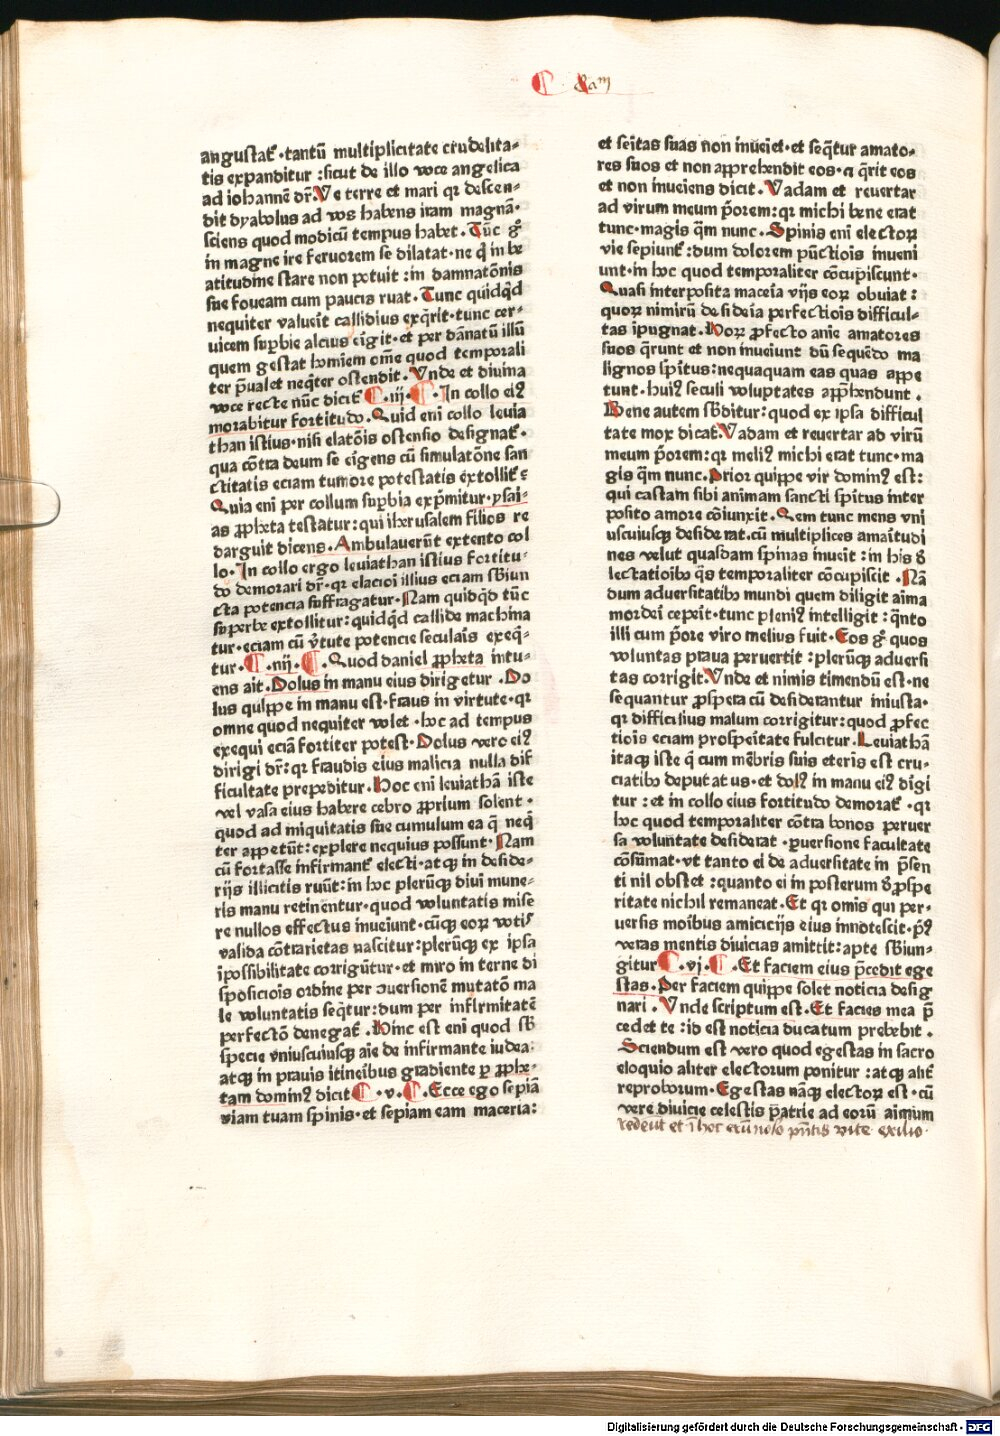 angustat᷑·tantū multiplicitate crudelita-
tis expanditur :sicut de illo voce angelica
ad iohannē dr̄.Ve terre et mari qr descen-
dit dyabolus ad vos habens iram magnā·
sciens quod modicū tempus habet.Tūc gͦ
in magne ire feruorem se dilatat·ne q̄ in be
atitudine stare non potuit :in damnatōnis
sue foueam cum paucis ruat.Tunc quidq̄d
nequiter valuerit callidius exq̄rit·tunc cer-
uicem suꝑbie alcius erigit·et per dānatū illū
quem gestat homīem om̄e quod temporali
ter ꝑualet neq̄ter ostendit.Vnde et diuina
voce recte nūc dicit᷑ C·iij·C·In collo eiꝰ
morabitur fortitudo.Quid enī collo leuia
than istius·nisi elatōis ostensio designat᷑·
qua cōtra deum se erigens cū simulatōne san
ctitatis eciam tumore potestatis extollit᷑ :
Quia enī per collum suꝑbia exp̄mitur·ysai-
as ꝓpheta testatur:qui iherusalem filios re
darguit dicens.Ambulauerūt extento col
lo·In collo ergo leuiathan istius fortitu-
do demorari dr̄·qr elacioni illius eciam sb̄iun
cta potencia suffragatur·Nam quidq̄d tūc
superbe extollitur:quidq̄d callide machina
tur·eciam cū v̄tute potencie secularis exeq̄-
tur.C·iiij·C·Quod daniel ꝓpheta intu-
ens ait.Dolus in manu eius dirigetur.Do
lus quippe in manu est·fraus in virtute·qr
omne quod nequiter volet·hoc ad tempus
exequi eciā fortiter potest·Dolus vero eiꝰ
dirigi dr̄:qr fraudis eius malicia nulla dif
ficultate prepeditur.Hoc enī leuiathā iste
vel vasa eius habere crebro ꝓprium solent·
quod ad iniquitatis sue cumulum ea q̄ neq̄
ter appetūt:explere nequius possunt·Nam
cū fortasse infirmant᷑ electi·atqꝫ in deside-
rijs illicitis ruūt:in hoc plerūqꝫ diuī mune-
ris manu retinentur·quod voluntatis mise
re nullos effectus inueiunt·cūqꝫ eoꝝ votis
valida cōtrarietas nascitur:plerūqꝫ ex ipsa
ipossibilitate corrigūtur·et miro in terne di
sposiciois ordine per ꝯuersionē mutatōm ma
le voluntatis seq̄tur:dum per infirmitatē
perfectō denegat᷑.Hinc est enī quod sb̄
specie vniuscuiusqꝫ aīe de infirmante iudea:
atqꝫ in prauis itineribus gradiente ꝑ ꝓphe-
tam dominꝰ dicit C·v·C·Ecce ego sepiā
viam tuam spinis·et sepiam eam maceria:
C Xam
et sēitas suas non inueiet·et seq̄tur amato-
res suos et non apprehendit eos·⁊ q̄rit eos
et non inueiens dicit.Vadam et reuertar
ad virum meum p̄orem:qr michi bene erat
tunc·magis q̄m nunc.Spinis enī electoꝝ
vie sepiunt᷑:dum dolorem pūctiois inueni
unt·in hoc quod temporaliter cōcupiscunt·
Quasi interposita maceīa vijs eoꝝ obuiat:
quoꝝ nimirū desideīa perfectiois difficul-
tas ipugnat.Hoꝝ ꝓfecto anīe amatores
suos q̄runt et non inueiunt dū sequēdo ma
lignos sp̄itus:nequaquam eas quas appe
tunt·huiꝰ seculi voluptates app̄hendunt.
Bene autem sb̄ditur:quod ex ipsa difficul
tate mox dicat.Vadam et reuertar ad virū
meum p̄orem:qr meliꝰ michi erat tunc·ma
gis q̄m nunc.Prior quippe vir dominꝰ est:
qui castam sibi animam sancti sp̄itus inter
posito amore cōiunxit.Quem tunc mens vni
uscuiusqꝫ desiderat·cū multiplices amaritudi
nes velut quasdam spinas inueīt:in his d̄
lectatioibꝰ q̄s temporaliter cōcupiscit.Nā
dum aduersitatibꝰ mundi quem diligit aīma
morderi ceperit·tunc pleniꝰ intelligit:q̄nto
illi cum p̄ore viro melius fuit.Eos gͦ quos
voluntas praua peruertit:plerūqꝫ aduersi
tas corrigit.Vnde et nimis timendū est·ne
sequantur ꝓspera cū desiderantur iniusta·
qr difficilius malum corrigitur:quod ꝓfec
tiois eciam prosperitate fulcitur.Leuiathā
itaqꝫ iste q̄ cum mēbris suis eternis est cru-
ciatibꝰ deputatus·et dolꝰ in manu eiꝰ dīgi
tur:et in collo eius fortitudo demorat᷑·qr
hoc quod temporaliter cōtra bonos peruer
sa voluntate desiderat·ꝑuersione facultate
cōsūmat·vt tanto ei de aduersitate in p̄sen
ti nil obstet:quanto ei in posterum d̄ ꝓspe
ritate nichil remaneat.Et qr omis qui per-
uersis moribus amicicijs eius innotescit·p̄ꝰ
veras mentis diuicias amittit:apte sb̄iun-
gitur C·vj·C.Et faciem eius p̄cedit ege
stas.Per faciem quippe solet noticia desig
nari.Vnde scriptum est.Et facies mea p̄
cedet te:id est noticia ducatum prebebit.
Sciendum est vero quod egestas in sacro
eloquio aliter electorum ponitur:atqꝫ alit᷑
reproborum·Egestas nāqꝫ electoꝝ est·cū
vere diuicie celestis p̄atrie ad eorū animum
redeūt et ī hoc erūnoso p̄ntis vite exilio·
Digitalisierung gefördert durch die Deutsche Forschungsgemeinschaft - DFG